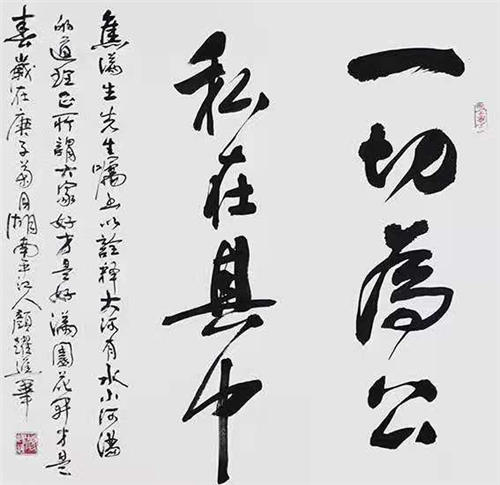 一切為公
私在其中
焦滿生先生囑書以詮释大河有水小河滿
的道理正所謂大家好才是好滿園花開才是
春歲在庚子菊月湖南平江人顏躍進筆